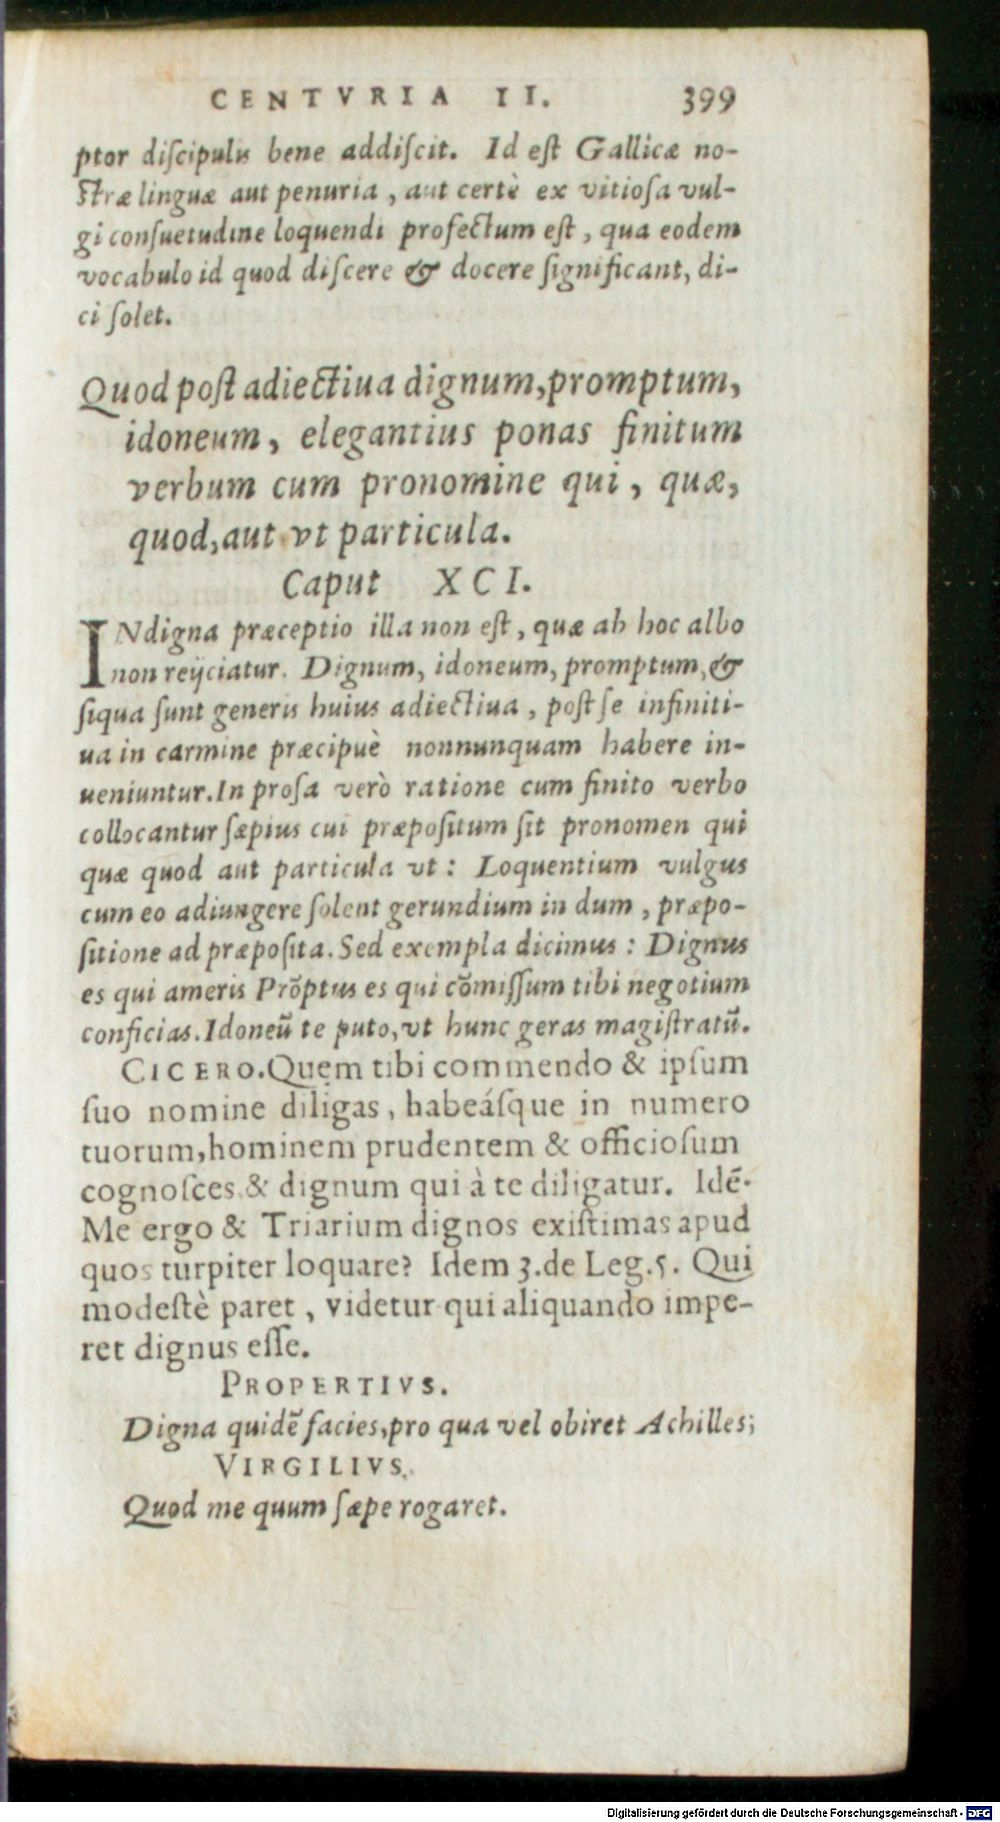 CENTVRIA II. 399
ptor diſcipulis bene addiſcit. Id eſt Gallicæ no-
ſtræ linguæ aut penuria, aut certè ex vitioſa vul-
gi conſuetudine loquendi profectum eſt, qua eodem
vocabulo id quod diſcere & docere ſignificant, di-
ci ſolet.
Quod poſt adiectiua dignum, promptum,
idoneum, elegantius ponas finitum
verbum cum pronomine qui, quæ,
quod, aut vt particula.
Caput XCI.
INdigna præceptio illa non eſt, quæ ab hoc albo
non reijciatur. Dignum, idoneum, promptum, &
ſiqua ſunt generis huius adiectiua, poſt ſe infiniti-
ua in carmine præcipuè nonnunquam habere in-
ueniuntur. In proſa verò ratione cum finito verbo
collocantur ſæpius cui præpoſitum ſit pronomen qui
quæ quod aut particula vt: Loquentium vulgus
cum eo adiungere ſolent gerundium in dum, præpo-
ſitione ad præpoſita. Sed exempla dicimus: Dignus
es qui ameris Prõptus es qui cõmiſſum tibi negotium
conficias. Idoneũ te puto, vt hunc geras magiſtratũ.
CICERO. Quem tibi commendo & ipſum
ſuo nomine diligas, habeáſque in numero
tuorum, hominem prudentem & officioſum
cognoſces & dignum qui à te diligatur. Idẽ.
Me ergo & Triarium dignos exiſtimas apud
quos turpiter loquare? Idem 3. de Leg. 5. Qui
modeſtè paret, videtur qui aliquando impe-
ret dignus eſſe.
PROPERTIVS.
Digna quidẽ facies, pro qua vel obiret Achilles;
VIRGILIVS.
Quod me quum ſæpe rogaret.
Digitalisierung gefördert durch die Deutsche Forschungsgemeinschaft - DFG